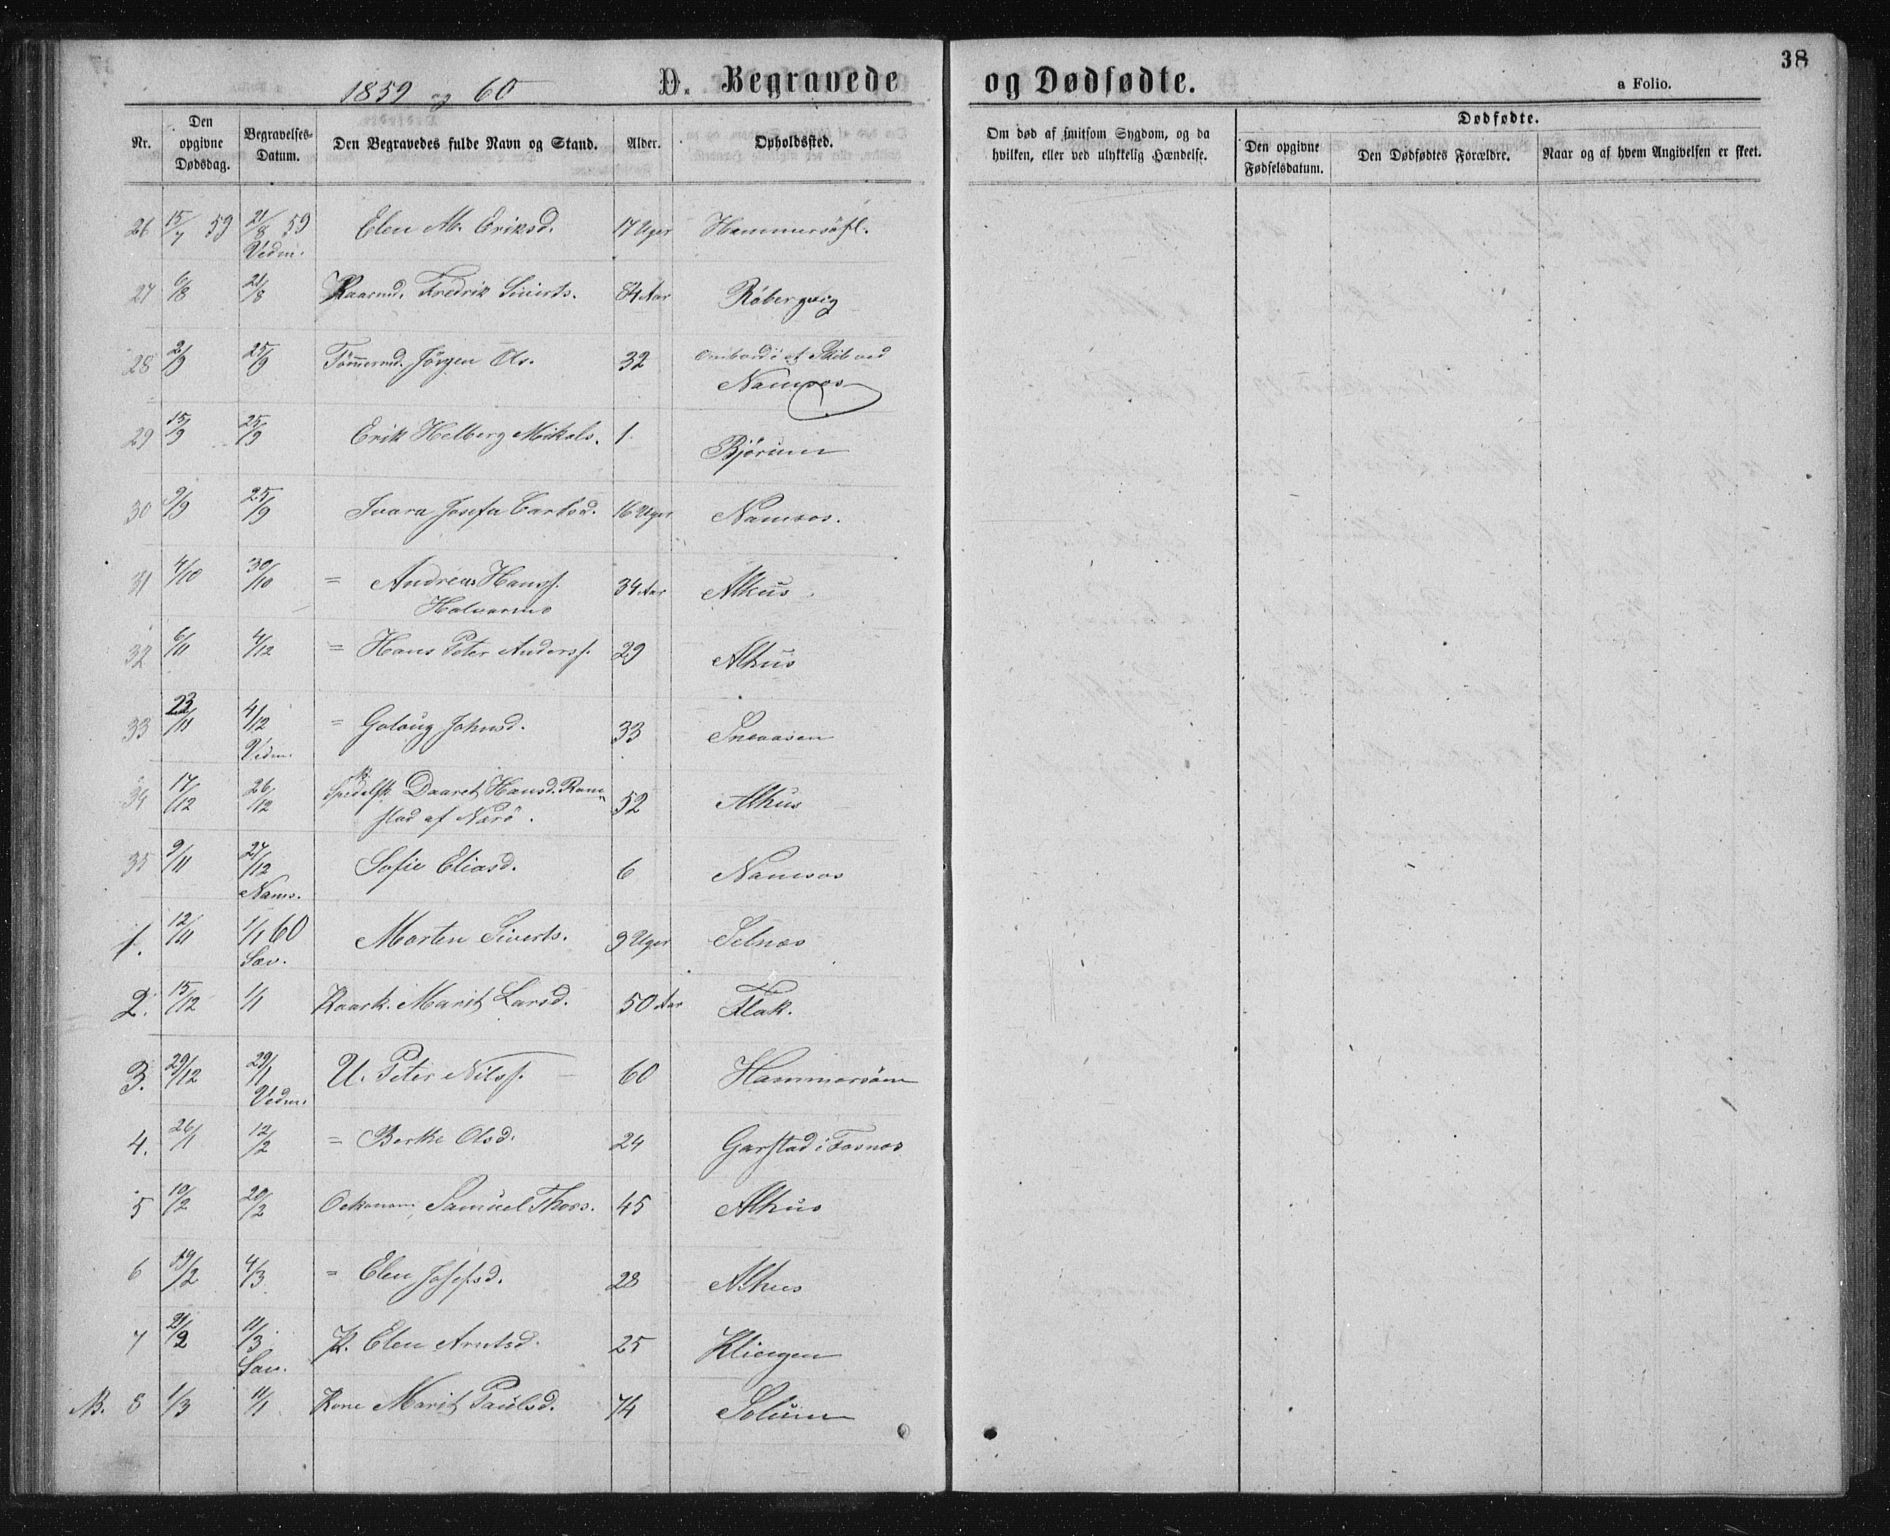 38
1859 og 60 D. Begravede og Dødfødte. a Folio.
Nr. Den opgivne Dødsdag. Begravelses-Datum. Den Begravedes fulde Navn og Stand. Alder. Opholdssted. Om død af smitsom Sygdom, og da hvilken, eller ved ulykkelig Hændelse. Dødfødte. Den opgivne Fødselsdatum. Den Dødfødtes Forældre. Naar og af hvem Angivelsen er skeet.
26 15/7 59 21/8 59 Elen M. Eriksd. 17 Uger
Vedm.
27 6/8 21/8 Fredrik Siverts. 84 Aar Råbergvig
28 2/9 25/9 Jørgen Ols. 32 ombord i et Skib ved
Namsos
29 15/9 25/9 Erik Helberg Mikals. 1. Bjørum
30 9/9 25/9 Ivara Josefa Carlsd. 16 Uger Namsos.
31 4/10 30/10 = Andreas Hansf. 34 Aar Alhus.
Halvarmo
32 6/11 4/12 = Hans Peter Andersf. 29 Alhus
33 23/11 4/12 = Goloug Johnsd. 33 Sneaasen
Vedm.
34 17/12 26/12 Spedalsk Daaret Hansd. Ram- 52 Alhus
stad af Nærö.
35 9/11 27/12 Sofie Eliasd. 6 Namsos
Nams.
1. 12/11 1/1 60 Morten Siverts. 9 Uger Selnæs
Sæv.
2. 15/12 1/1 Kaark. Marit Larsd. 50 Aar Flak.
3. 29/12 29/1 U. Peter Nilsf. 60
Vedm.
4. 26/1 12/2 = Berthe Olsd. 24 Garstad i Fosnes
5 10/2 20/2 Oekonom Samuel Thors. 45 Alhus
6 19/2 4/3 = Elen Josefsd. 28 Alhus
7 21/2 11/3 K. Elen Arntsd. 25 Klingen
Sæv.
8 1/3 11/1 Kone Marit Paulsd. 74 Solum